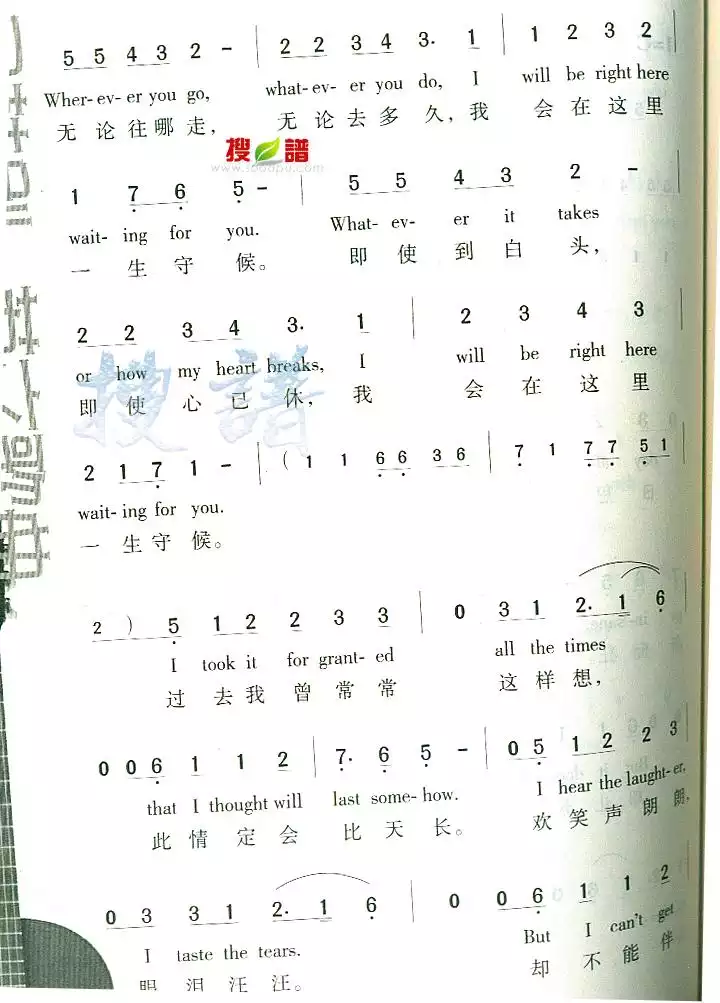 5 5 4 3 2 - | 2 2 3 4 3· 1 | 1 2 3 2
Wher-ev-er you go, what-ev-er you do, I will be right here
无论往哪走, 无论去多久,我 会在这里
搜譜
www.sooopu.com
1 7 6 5 - | 5 5 4 3 2 -
wait-ing for you. What-ev-er it takes
一生守候。 即使到白头,
2 2 3 4 3· 1 | 2 3 4 3
or how my heart breaks, I will be right here
即使心已休,我 会在这里
搜譜
2 1 7 1 - | (1 1 6 6 3 6 | 7 1 7 7 5 1
wait-ing for you.
一生守候。
2 ) 5 1 2 2 3 3 | 0 3 1 2· 1 6
I took it for grant-ed all the times
过去我曾常常 这样想,
0 0 6 1 1 2 | 7· 6 5 - | 0 5 1 2 2 3
that I thought will last some-how. I hear the laught-er,
此情定会 比天长。 欢笑声朗朗,
0 3 3 1 2· 1 6 | 0 0 6 1 1 2
I taste the tears. But I can't get
眼泪汪汪。 却不能伴